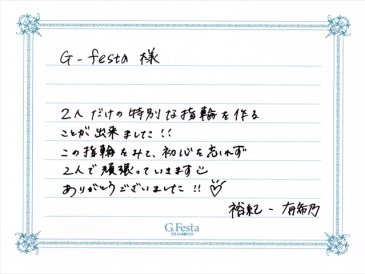 G-festa 様
2人だけの特別な指輪を作る
ことが出来ました!!
この指輪をみて、初心を忘れず
2人で頑張っていきます
ありがとうございました!!
裕紀-有希乃
G.Festa
DIAMOND